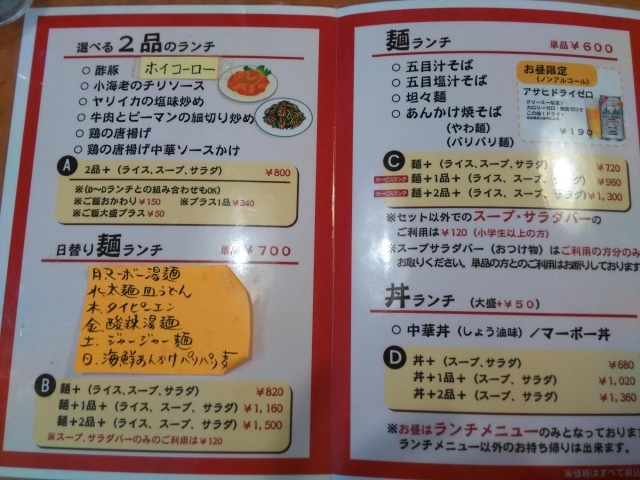 選べる2品のランチ
○ 酢豚 ホイコーロー
○ 小海老のチリソース
○ ヤリイカの塩味炒め
○ 牛肉とピーマンの細切り炒め
○ 鶏の唐揚げ
○ 鶏の唐揚げ中華ソースかけ
A
2品+(ライス、スープ、サラダ) ¥800
※(B〜Dランチとの組み合わせもOK)
※ご飯おかわり¥150 ※プラス1品¥340
※ご飯大盛プラス¥50
日替り麺ランチ 単品¥700
月.マーボー湯麺
火.太麺皿うどん
木.タイピーエン
金.酸辣湯麺
土.ジャージャー麺
日.海鮮あんかけパリパリ麦
B
麺+(ライス、スープ、サラダ) ¥820
麺+1品+(ライス、スープ、サラダ) ¥1,160
麺+2品+(ライス、スープ、サラダ) ¥1,500
※スープ、サラダバーのみのご利用は¥120
麺ランチ 単品¥600
○ 五目汁そば
○ 五目塩汁そば
○ 坦々麺
○ あんかけ焼そば
(やわ麺)
(パリパリ麺)
お昼限定
(ノンアルコール)
アサヒドライゼロ
クリーミーな泡!
¥190
Asahi
C
麺+(ライス、スープ、サラダ) ¥720
サービスランチ 麺+1品+(ライス、スープ、サラダ) ¥960
サービスランチ 麺+2品+(ライス、スープ、サラダ) ¥1,300
※セット以外でのスープ・サラダバーの
ご利用は¥120(小学生以上の方)
※スープサラダバー(おつけ物)はご利用の方分のみ
お取りください。単品の方とのご利用はお断りしております
丼ランチ (大盛+¥50)
○ 中華丼(しょう油味)/マーボー丼
D
丼+(スープ、サラダ) ¥680
丼+1品+(スープ、サラダ) ¥1,020
丼+2品+(スープ、サラダ) ¥1,360
※お昼はランチメニューのみとなっております
ランチメニュー以外のお持ち帰りは出来ます。
※価格はすべて税込